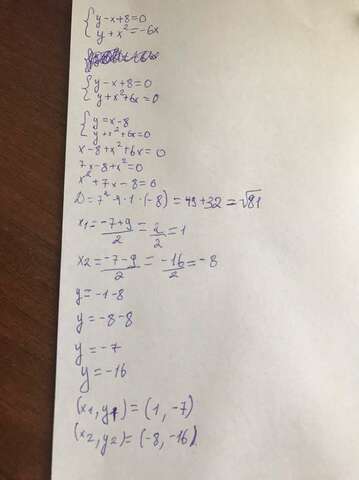 {y-x+8=0
{y+x²=-6x
{y-x+8=0
{y+x²+6x=0
{y=x-8
{y+x²+6x=0
x-8+x²+6x=0
7x-8+x²=0
x²+7x-8=0
D=7²-4·1·(-8)=49+32=√81
x1=\frac{-7+9}{2}=\frac{2}{2}=1
x2=\frac{-7-9}{2}=\frac{-16}{2}=-8
y=-1-8
y=-8-8
y=-7
y=-16
(x1,y1)=(1,-7)
(x2,y2)=(-8,-16)